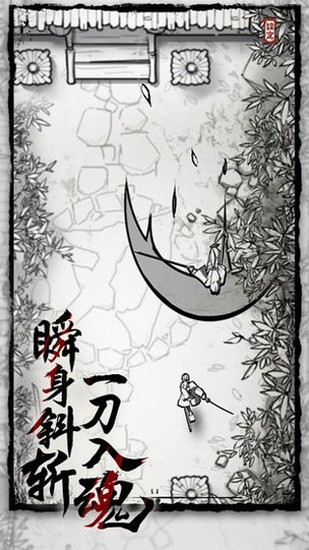 一刀入魂
瞬身斜斬